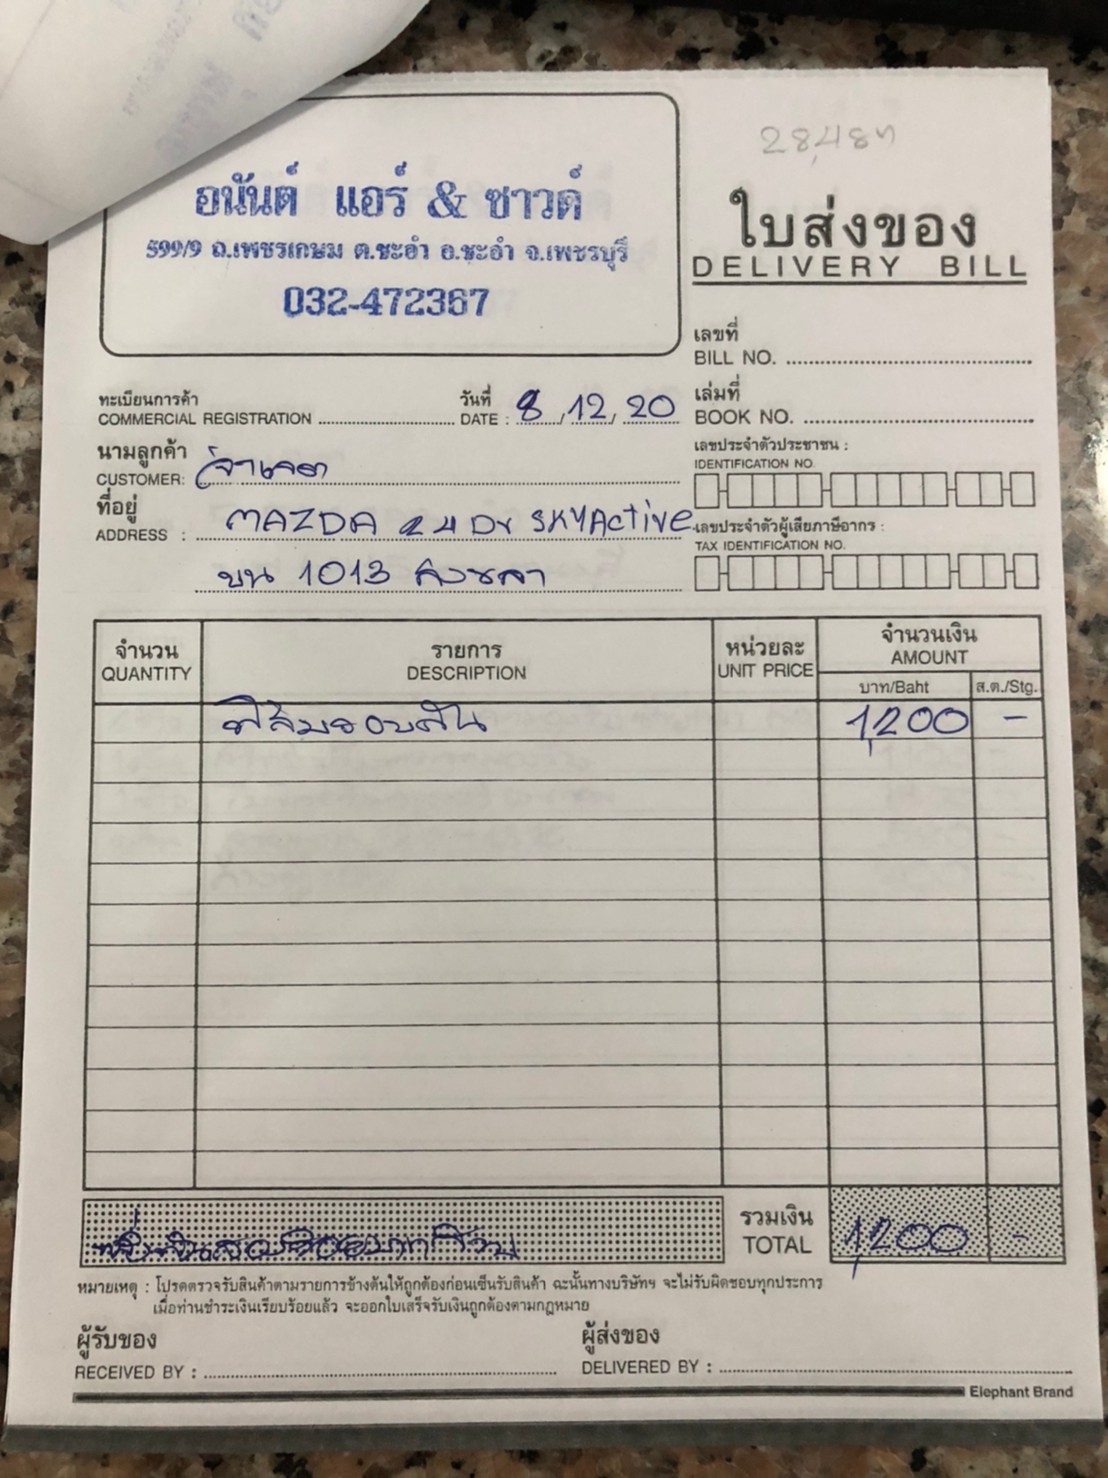 28,487
อนันต์ แอร์ & ซาวด์
599/9 ถ.เพชรเกษม ต.ชะอำ อ.ชะอำ จ.เพชรบุรี
032-472367
ใบส่งของ
DELIVERY BILL
เลขที่
BILL NO.
ทะเบียนการค้า
COMMERCIAL REGISTRATION
วันที่
DATE : 8/12/20
เล่มที่
BOOK NO.
นามลูกค้า
CUSTOMER:
เลขประจำตัวประชาชน :
IDENTIFICATION NO.
ที่อยู่
ADDRESS : MAZDA 2 4 Dr SKYActive
เลขประจำตัวผู้เสียภาษีอากร :
TAX IDENTIFICATION NO.
บน 1013 สงขลา
จำนวน
QUANTITY
รายการ
DESCRIPTION
หน่วยละ
UNIT PRICE
จำนวนเงิน
AMOUNT
บาท/Baht
ส.ต./Stg.
ฟิล์มรอบคัน 1,200 -
หนึ่งพันสองร้อยบาทถ้วน
รวมเงิน
TOTAL
1,200 -
หมายเหตุ : โปรดตรวจรับสินค้าตามรายการข้างต้นให้ถูกต้องก่อนเซ็นรับสินค้า ฉะนั้นทางบริษัทฯ จะไม่รับผิดชอบทุกประการ
เมื่อท่านชำระเงินเรียบร้อยแล้ว จะออกใบเสร็จรับเงินถูกต้องตามกฎหมาย
ผู้รับของ
RECEIVED BY :
ผู้ส่งของ
DELIVERED BY :
Elephant Brand